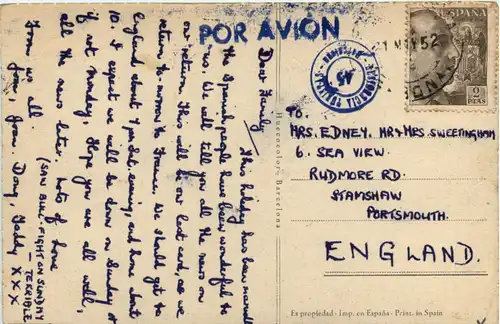 POR AVION
ESPAÑA
2
PTAS
52
45
Dear Family
This holiday has been
the Spanish people have been wonderful to
us. We will tell you all the news on
our return. This will be our last card, as we
return to-morrow to France. We should get to
England about 9 Sat. evening, and home about
10. I expect we will be down on Sunday
if not Monday. Hope you are all well,
all the news later, lots of love
From us all.
from Dany, Taddy
XXX
(SAW BULL-FIGHT ON SUNDAY
— TERRIBLE
Huecocolor - Barcelona
TO.
MRS. EDNEY. MR & MRS. SWEETINGHAM
6. SEA VIEW.
RUDMORE RD.
STAMSHAW
PORTSMOUTH.
ENGLAND.
Es propiedad - Imp. en España - Print. in Spain